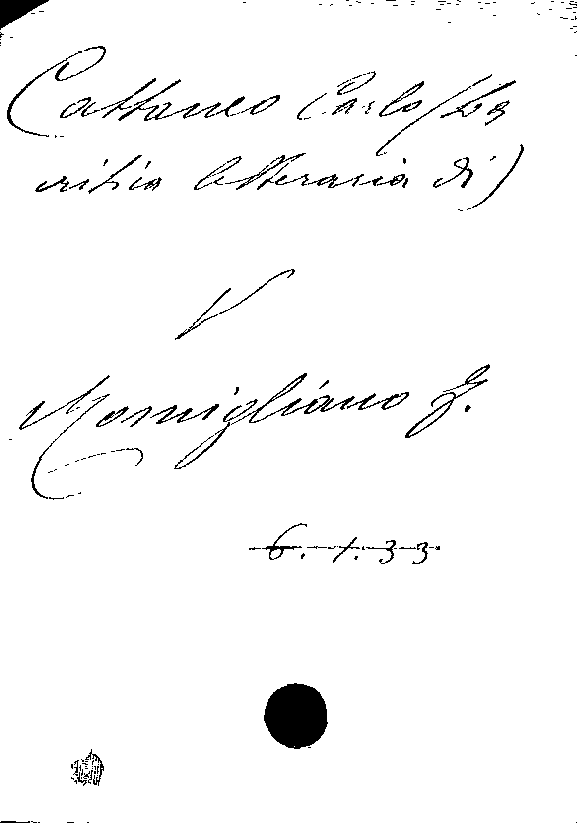 Cattaneo Carlo (La
critica letteraria di)
V
Momigliano F.
6. 1. 33